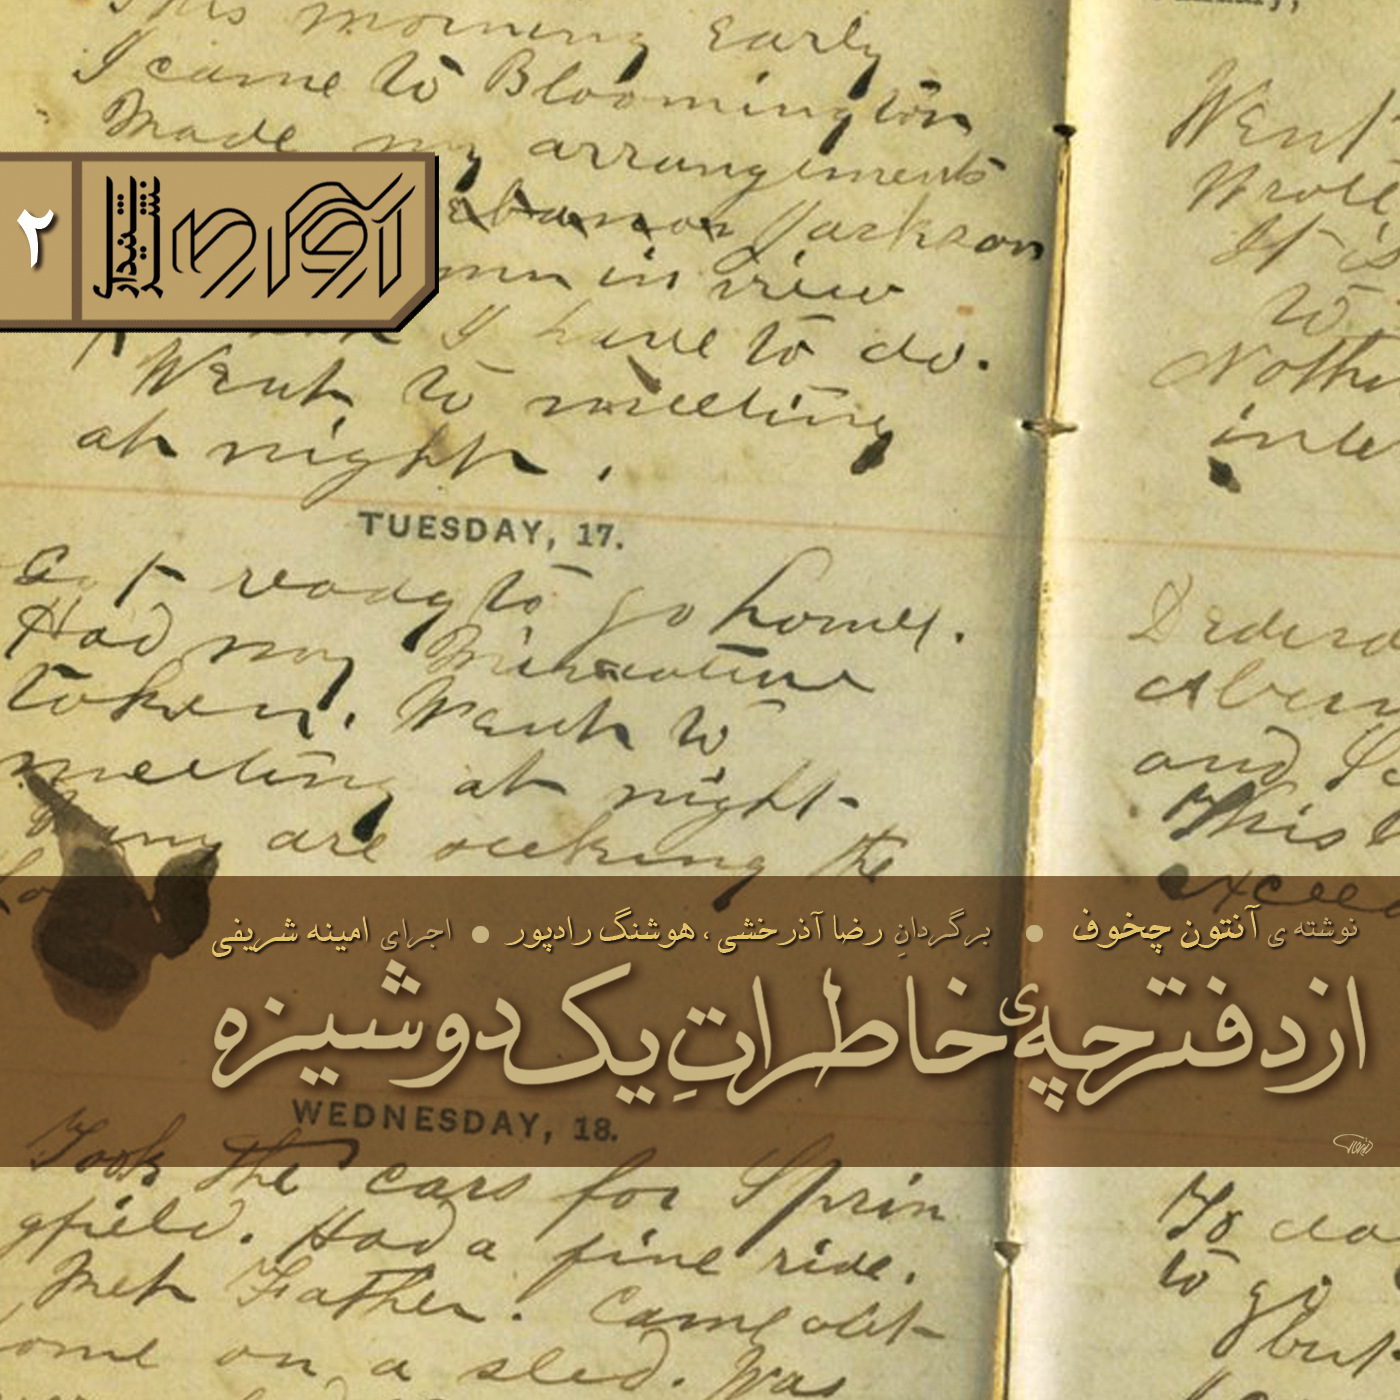 This morning Early
I came to Bloomington
Made my arrangements
Lebanon Jackson
in view
I have to do.
Went to meeting
at night.
TUESDAY, 17.
Got ready to go home.
Had my Miniature
taken. Went to
meeting at night-
Many are seeking the
Went
Wrote
It is
to
and
This
نوشته ی آنتون چخوف • برگردانِ رضا آذرخشی، هوشنگ رادپور • اجرای امینه شریفی
از دفترچهٔ خاطراتِ یک دوشیزه
WEDNESDAY, 18.
Took the cars for Sprin
gfield. Had a fine ride.
Met Father. Came
ome on a sled. Was
to go
but
شنیداری
۲